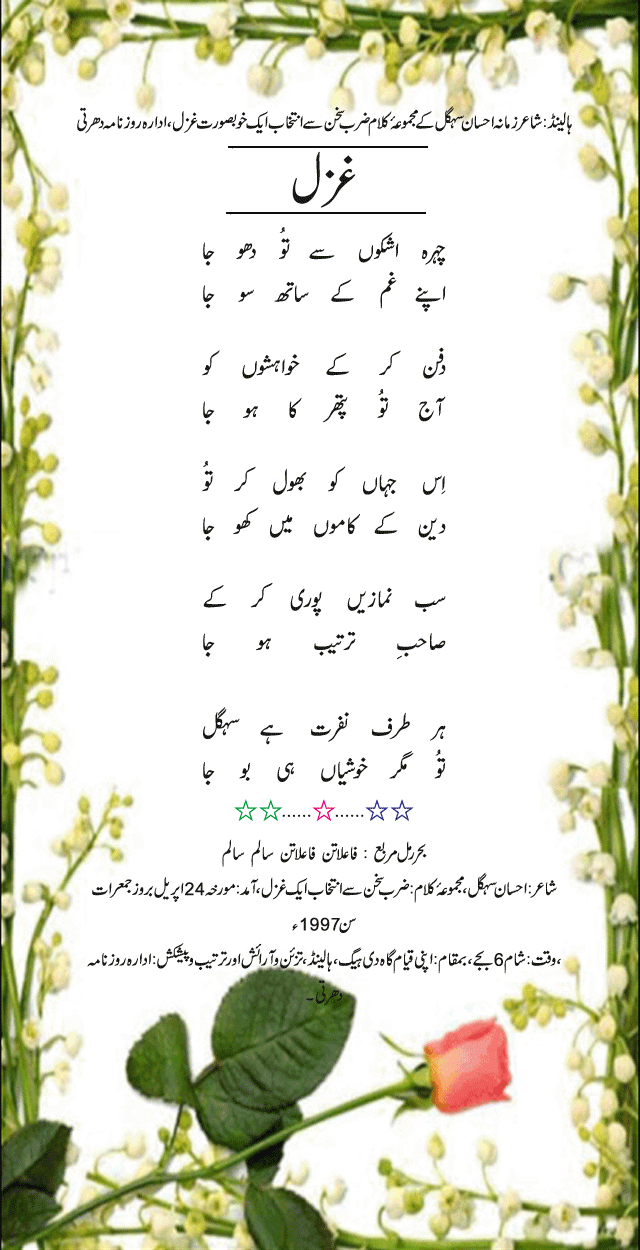 ہالینڈ: شاعر زمانہ احسان سہگل کے مجموعۂ کلام ضرب سخن سے انتخاب ایک خوبصورت غزل، ادارہ روزنامہ دھرتی
غزل
چہرہ اشکوں سے تُو دھو جا
اپنے غم کے ساتھ سو جا
دفن کر کے خواہشوں کو
آج تُو پتھر کا ہو جا
اِس جہاں کو بھول کر تُو
دین کے کاموں میں کھو جا
سب نمازیں پوری کر کے
صاحبِ ترتیب ہو جا
ہر طرف نفرت ہے سہگل
تُو مگر خوشیاں ہی بو جا
☆☆......☆......☆☆
بحر رمل مربع : فاعلاتن فاعلاتن سالم سالم
شاعر: احسان سہگل، مجموعۂ کلام: ضرب سخن سے انتخاب ایک غزل، آمد: مورخہ 24 اپریل بروز جمعرات
سن 1997ء
،وقت: شام 6 بجے، بمقام: اپنی قیام گاہ دی ہیگ، ہالینڈ، تزئن و آرائش اور ترتیب و پیشکش: ادارہ روزنامہ
دھرتی۔